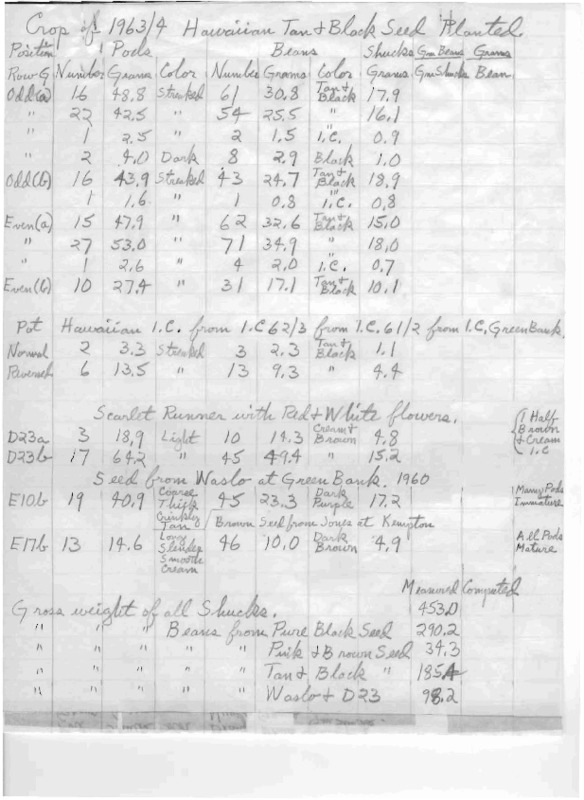 Crop of 1963/4 Hawaiian Tan & Black Seed Planted.
Position Pods Beans Shucks Gm Beans Grams
Row G Number Grams Color Number Grams Color Grams Gm Shuck Bean.
Odd(a) 16 48.8 Streaked 61 30.8 Tan & Black 17.9
" 22 42.5 " 54 25.5 " 16.1
" 1 2.5 " 2 1.5 I.C. 0.9
" 2 4.0 Dark 8 2.9 Black 1.0
Odd(b) 16 43.9 Streaked 43 24.7 Tan & Black 18.9
1 1.6 " 1 0.8 I.C. 0.8
Even(a) 15 47.9 " 62 32.6 Tan & Black 15.0
" 27 53.0 " 71 34.9 " 18.0
" 1 2.6 " 4 2.0 I.C. 0.7
Even(b) 10 27.4 " 31 17.1 Tan & Black 10.1
Pot Hawaiian I.C. from I.C 62/3 from I.C. 61/2 from I.C, Green Bank.
Normal 2 3.3 Streaked 3 2.3 Tan & Black 1.1
6 13.5 " 13 9.3 " 4.4
Scarlet Runner with Red & White flowers.
D23a 3 18.9 Light 10 14.3 Cream & Brown 4.8 1 Half Brown & Cream I.C
D23b 17 64.2 " 45 49.4 " 15.2
Seed from Waslo at Green Bank. 1960
E10b 19 40.9 Coarse Thick Crinkley Tan 45 23.3 Dark Purple 17.2 Many Pods Immature
Brown Seed from Jones at Kempton
E17b 13 14.6 Long Slender Smooth Cream 46 10.0 Dark Brown 4.9 All Pods Mature
Measured Computed
Gross weight of all Shucks. 453.0
" " " Beans from Pure Black Seed 290.2
" " " " " Pink & Brown Seed 34.3
" " " " " Tan & Black " 185.4
" " " " " Waslo & D23 98.2